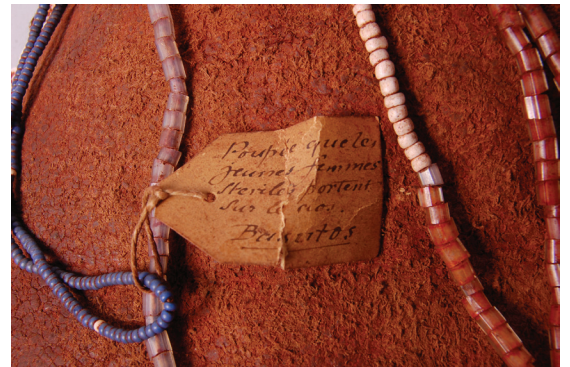 Poupée que les
jeunes femmes
stériles portent
sur le dos.
Bassutos